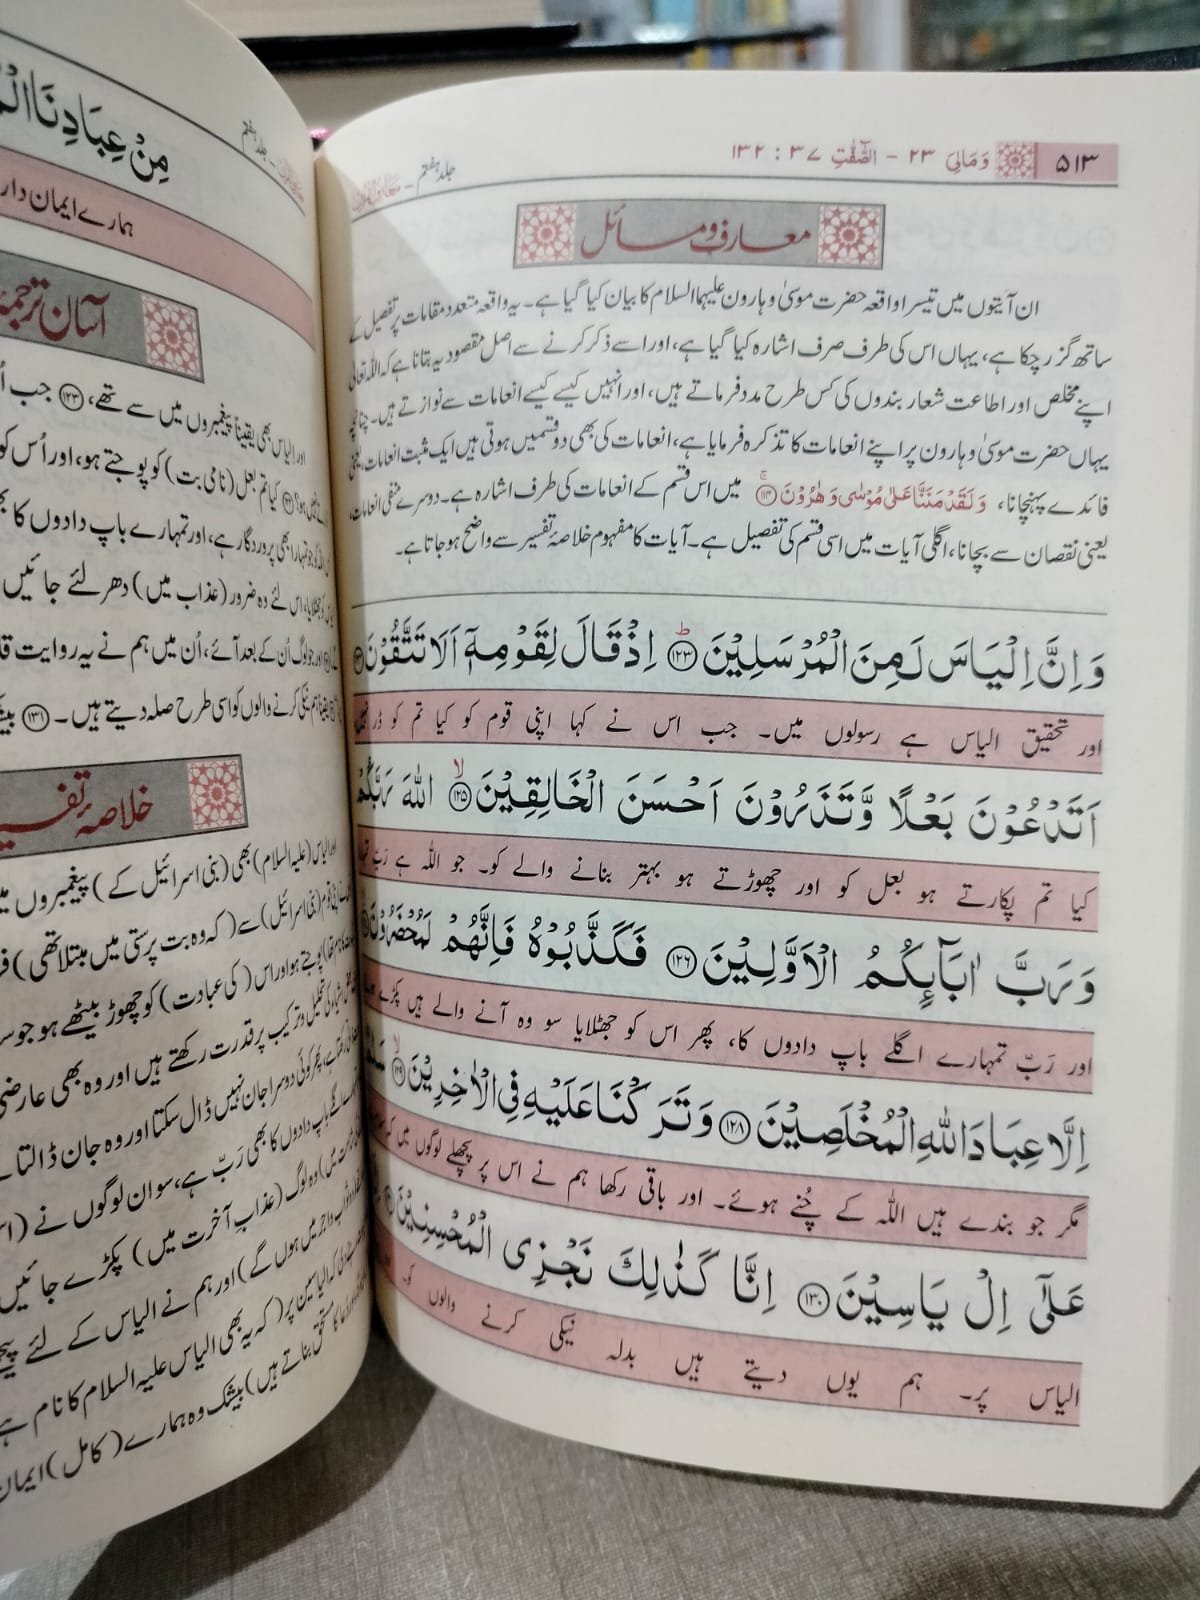 ۵۱۳ وَمَالِیَ ۲۳ - الصّٰفّٰتِ ۳۷ : ۱۳۲ جلد ہفتم - معارف القرآن
معارف و مسائل
ان آیتوں میں تیسرا واقعہ حضرت موسیٰ و ہارون علیہما السلام کا بیان کیا گیا ہے۔ یہ واقعہ متعدد مقامات پر تفصیل کے
ساتھ گزر چکا ہے، یہاں اس کی طرف صرف اشارہ کیا گیا ہے، اور اسے ذکر کرنے سے اصل مقصود یہ بتانا ہے کہ اللہ تعالیٰ
اپنے مخلص اور اطاعت شعار بندوں کی کس طرح مدد فرماتے ہیں، اور انہیں کیسے کیسے انعامات سے نوازتے ہیں۔ چنانچہ
یہاں حضرت موسیٰ و ہارون پر اپنے انعامات کا تذکرہ فرمایا ہے، انعامات کی بھی دو قسمیں ہوتی ہیں ایک مثبت انعامات، یعنی
فائدے پہنچانا، وَلَقَدْ مَنَنَّا عَلٰى مُوْسٰى وَهٰرُوْنَ ۝۱۱۴ میں اس قسم کے انعامات کی طرف اشارہ ہے۔ دوسرے منفی انعامات،
یعنی نقصان سے بچانا، اگلی آیات میں اسی قسم کی تفصیل ہے۔ آیات کا مفہوم خلاصۂ تفسیر سے واضح ہو جاتا ہے۔
وَاِنَّ اِلْيَاسَ لَمِنَ الْمُرْسَلِيْنَ ۝۱۲۳ اِذْ قَالَ لِقَوْمِهٖٓ اَلَا تَتَّقُوْنَ
اور تحقیق الیاس ہے رسولوں میں۔ جب اس نے کہا اپنی قوم کو کیا تم کو ڈر نہیں
اَتَدْعُوْنَ بَعْلًا وَّتَذَرُوْنَ اَحْسَنَ الْخَالِقِيْنَ ۝۱۲۵ اللّٰهَ رَبَّكُمْ
کیا تم پکارتے ہو بعل کو اور چھوڑتے ہو بہتر بنانے والے کو۔ جو اللہ ہے رَبّ
وَرَبَّ اٰبَآئِكُمُ الْاَوَّلِيْنَ ۝۱۲۶ فَكَذَّبُوْهُ فَاِنَّهُمْ لَمُحْضَرُوْنَ
اور رَبّ تمہارے اگلے باپ دادوں کا، پھر اس کو جھٹلایا سو وہ آنے والے ہیں پکڑے
اِلَّا عِبَادَ اللّٰهِ الْمُخْلَصِيْنَ ۝۱۲۸ وَتَرَكْنَا عَلَيْهِ فِى الْاٰخِرِيْنَ ۝۱۲۹
مگر جو بندے ہیں اللہ کے چُنے ہوئے۔ اور باقی رکھا ہم نے اس پر پچھلے لوگوں میں کہ
عَلٰٓى اِلْ يَاسِيْنَ ۝۱۳۰ اِنَّا كَذٰلِكَ نَجْزِى الْمُحْسِنِيْنَ
الیاس پر۔ ہم یوں دیتے ہیں بدلہ نیکی کرنے والوں کو۔
جلد ہفتم
مِنْ عِبَادِنَا
ہمارے ایمان دار
آسان ترجمۂ
اور الیاس بھی یقیناً پیغمبروں میں سے تھے، ۝۱۲۳ جب
کیا تم بعل (نامی بت) کو پوجتے ہو، اور اُس کو
تمہارا بھی پروردگار ہے، اور تمہارے باپ دادوں کا
اس لئے وہ ضرور (عذاب میں) دھر لئے جائیں
اور جو لوگ اُن کے بعد آئے، اُن میں ہم نے یہ روایت
ہم نیکی کرنے والوں کو اسی طرح صلہ دیتے ہیں۔ ۝۱۳۱
خلاصۂ
اور الیاس (علیہ السلام) بھی (بنی اسرائیل کے) پیغمبروں
(بنی اسرائیل) سے (کہ وہ بت پرستی میں مبتلا تھی)
پوجتے ہو اور اس (کی عبادت) کو چھوڑ بیٹھے ہو جو
تحلیل و ترکیب پر قدرت رکھتے ہیں اور وہ بھی عارضی
پھر کوئی دوسرا جان نہیں ڈال سکتا اور وہ جان ڈالتا
باپ دادوں کا بھی رَبّ ہے، سو ان لوگوں نے
وہ لوگ (عذابِ آخرت میں) پکڑے جائیں
میں ہوں گے) اور ہم نے الیاس کے لئے
الیاسین پر (کہ یہ بھی الیاس علیہ السلام کا نام ہے
مستحق بناتے ہیں) بیشک وہ ہمارے (کامل)